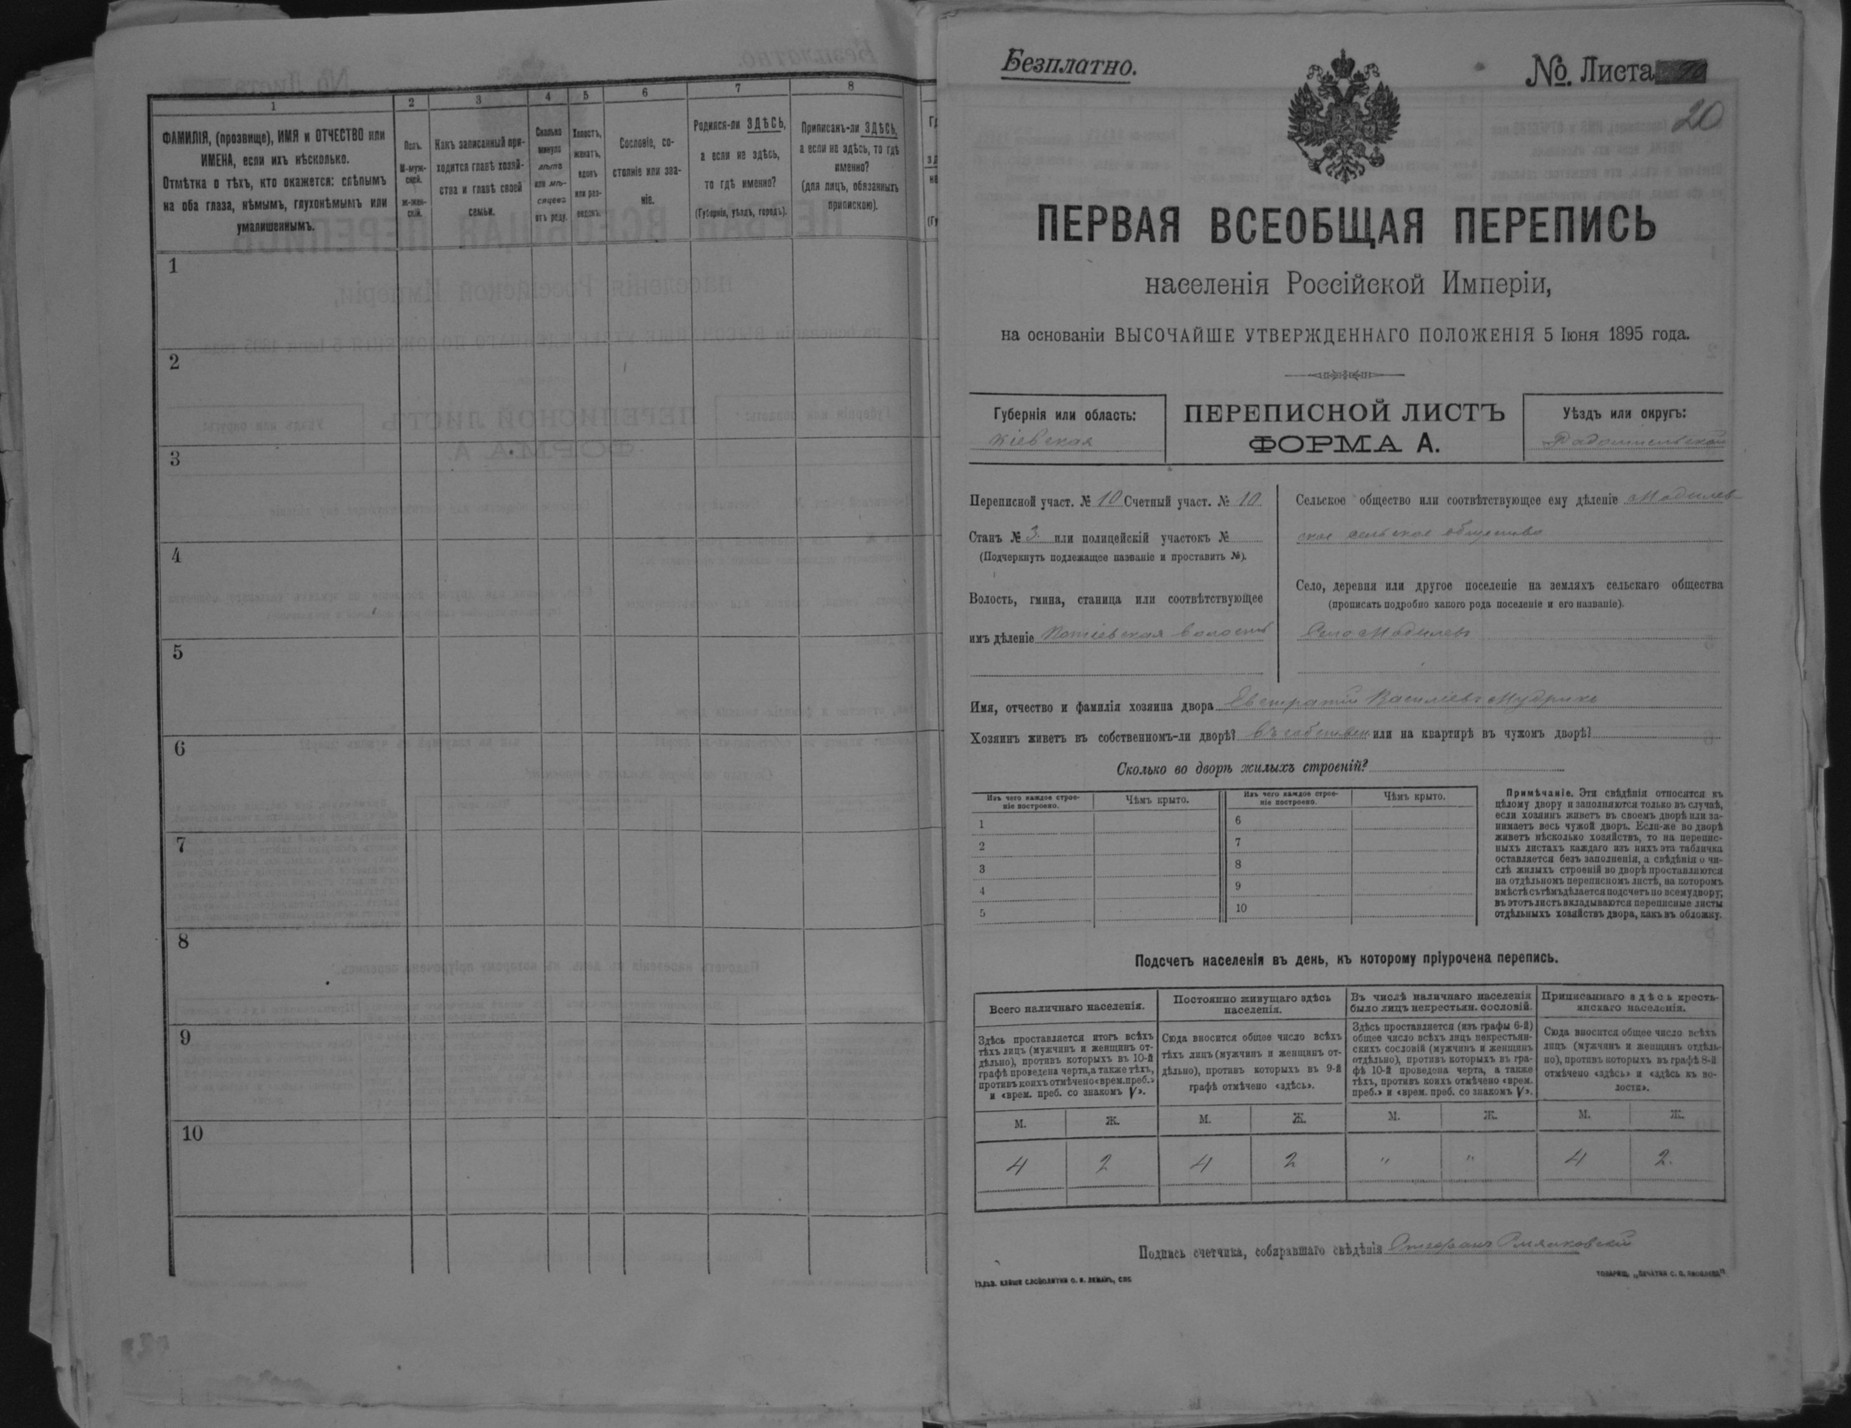 1
2
3
4
5
6
7
8
ФАМИЛІЯ, (прозвище), ИМЯ и ОТЧЕСТВО или
ИМЕНА, если ихъ нѣсколько.
Отмѣтка о тѣхъ, кто окажется: слѣпымъ
на оба глаза, нѣмымъ, глухонѣмымъ или
умалишеннымъ.
Полъ.
М-муж-
ской.
Ж-жен-
скій.
Какъ записанный при-
ходится главѣ хозяй-
ства и главѣ своей
семьи.
Сколько
минуло
лѣтъ
или мѣ-
сяцевъ
отъ роду.
Холостъ,
женатъ,
вдовъ
или раз-
веденъ.
Сословіе, со-
стояніе или зва-
ніе.
Родился-ли ЗДѢСЬ,
а если не здѣсь,
то гдѣ именно?
(Губернія, уѣздъ, городъ).
Приписанъ-ли ЗДѢСЬ,
а если не здѣсь, то гдѣ
именно?
(для лицъ, обязанныхъ
припискою).
1
2
3
4
5
6
7
8
9
10
Безплатно.
№ Листа
20
ПЕРВАЯ ВСЕОБЩАЯ ПЕРЕПИСЬ
населенія Россійской Имперіи,
на основаніи ВЫСОЧАЙШЕ УТВЕРЖДЕННАГО ПОЛОЖЕНІЯ 5 Іюня 1895 года.
Губернія или область:
Кіевская
ПЕРЕПИСНОЙ ЛИСТЪ
ФОРМА А.
Уѣздъ или округъ:
Радомысльскій
Переписной участ. № 10 Счетный участ. № 10
Станъ № 3. или полицейскій участокъ №
(Подчеркнуть подлежащее названіе и проставить №).
Волость, гмина, станица или соотвѣтствующее
имъ дѣленіе Потіевская волость
Сельское общество или соотвѣтствующее ему дѣленіе Модилев-
ское сельское общество
Село, деревня или другое поселеніе на земляхъ сельскаго общества
(прописать подробно какого рода поселеніе и его названіе).
Село Модилевъ
Имя, отчество и фамилія хозяина двора Евстратій Васильевъ Мудрикъ
Хозяинъ живетъ въ собственномъ-ли дворѣ? въ собствен. или на квартирѣ въ чужомъ дворѣ?
Сколько во дворѣ жилыхъ строеній?
Изъ чего каждое строе-
ніе построено.
Чѣмъ крыто.
Изъ чего каждое строе-
ніе построено.
Чѣмъ крыто.
1
2
3
4
5
6
7
8
9
10
Примѣчаніе. Эти свѣдѣнія относятся къ
цѣлому двору и заполняются только въ случаѣ,
если хозяинъ живетъ въ своемъ дворѣ или за-
нимаетъ весь чужой дворъ. Если-же во дворѣ
живетъ нѣсколько хозяйствъ, то на перепис-
ныхъ листахъ каждаго изъ нихъ эта табличка
оставляется безъ заполненія, а свѣдѣнія о чи-
слѣ жилыхъ строеній во дворѣ проставляются
на отдѣльномъ переписномъ листѣ, на которомъ
вмѣстѣ съ тѣмъ дѣлается подсчетъ по всему двору;
въ этотъ листъ вкладываются переписные листы
отдѣльныхъ хозяйствъ двора, какъ въ обложку.
Подсчетъ населенія въ день, къ которому пріурочена перепись.
Всего наличнаго населенія.
Постоянно живущаго здѣсь
населенія.
Въ числѣ наличнаго населенія
было лицъ некрестьян. сословій.
Приписаннаго здѣсь кресть-
янскаго населенія.
Здѣсь проставляется итогъ всѣхъ
тѣхъ лицъ (мужчинъ и женщинъ от-
дѣльно), противъ которыхъ въ 10-й
графѣ проведена черта, а также тѣхъ,
противъ коихъ отмѣчено «врем. преб.»
и «врем. преб. со знакомъ V».
Сюда вносится общее число всѣхъ
тѣхъ лицъ (мужчинъ и женщинъ от-
дѣльно), противъ которыхъ въ 9-й
графѣ отмѣчено «здѣсь».
Здѣсь проставляется (изъ графы 6-й)
общее число всѣхъ лицъ некрестьян-
скихъ сословій (мужчинъ и женщинъ
отдѣльно), противъ которыхъ въ гра-
фѣ 10-й проведена черта, а также
тѣхъ, противъ коихъ отмѣчено «врем.
преб.» и «врем. преб. со знакомъ V».
Сюда вносится общее число всѣхъ
лицъ (мужчинъ и женщинъ отдѣль-
но), противъ которыхъ въ графѣ 8-й
отмѣчено «здѣсь» и «здѣсь къ во-
лости».
М. Ж. М. Ж. М. Ж. М. Ж.
4 2 4 2 " " 4 2.
Подпись счетчика, собиравшаго свѣдѣнія Стефанъ